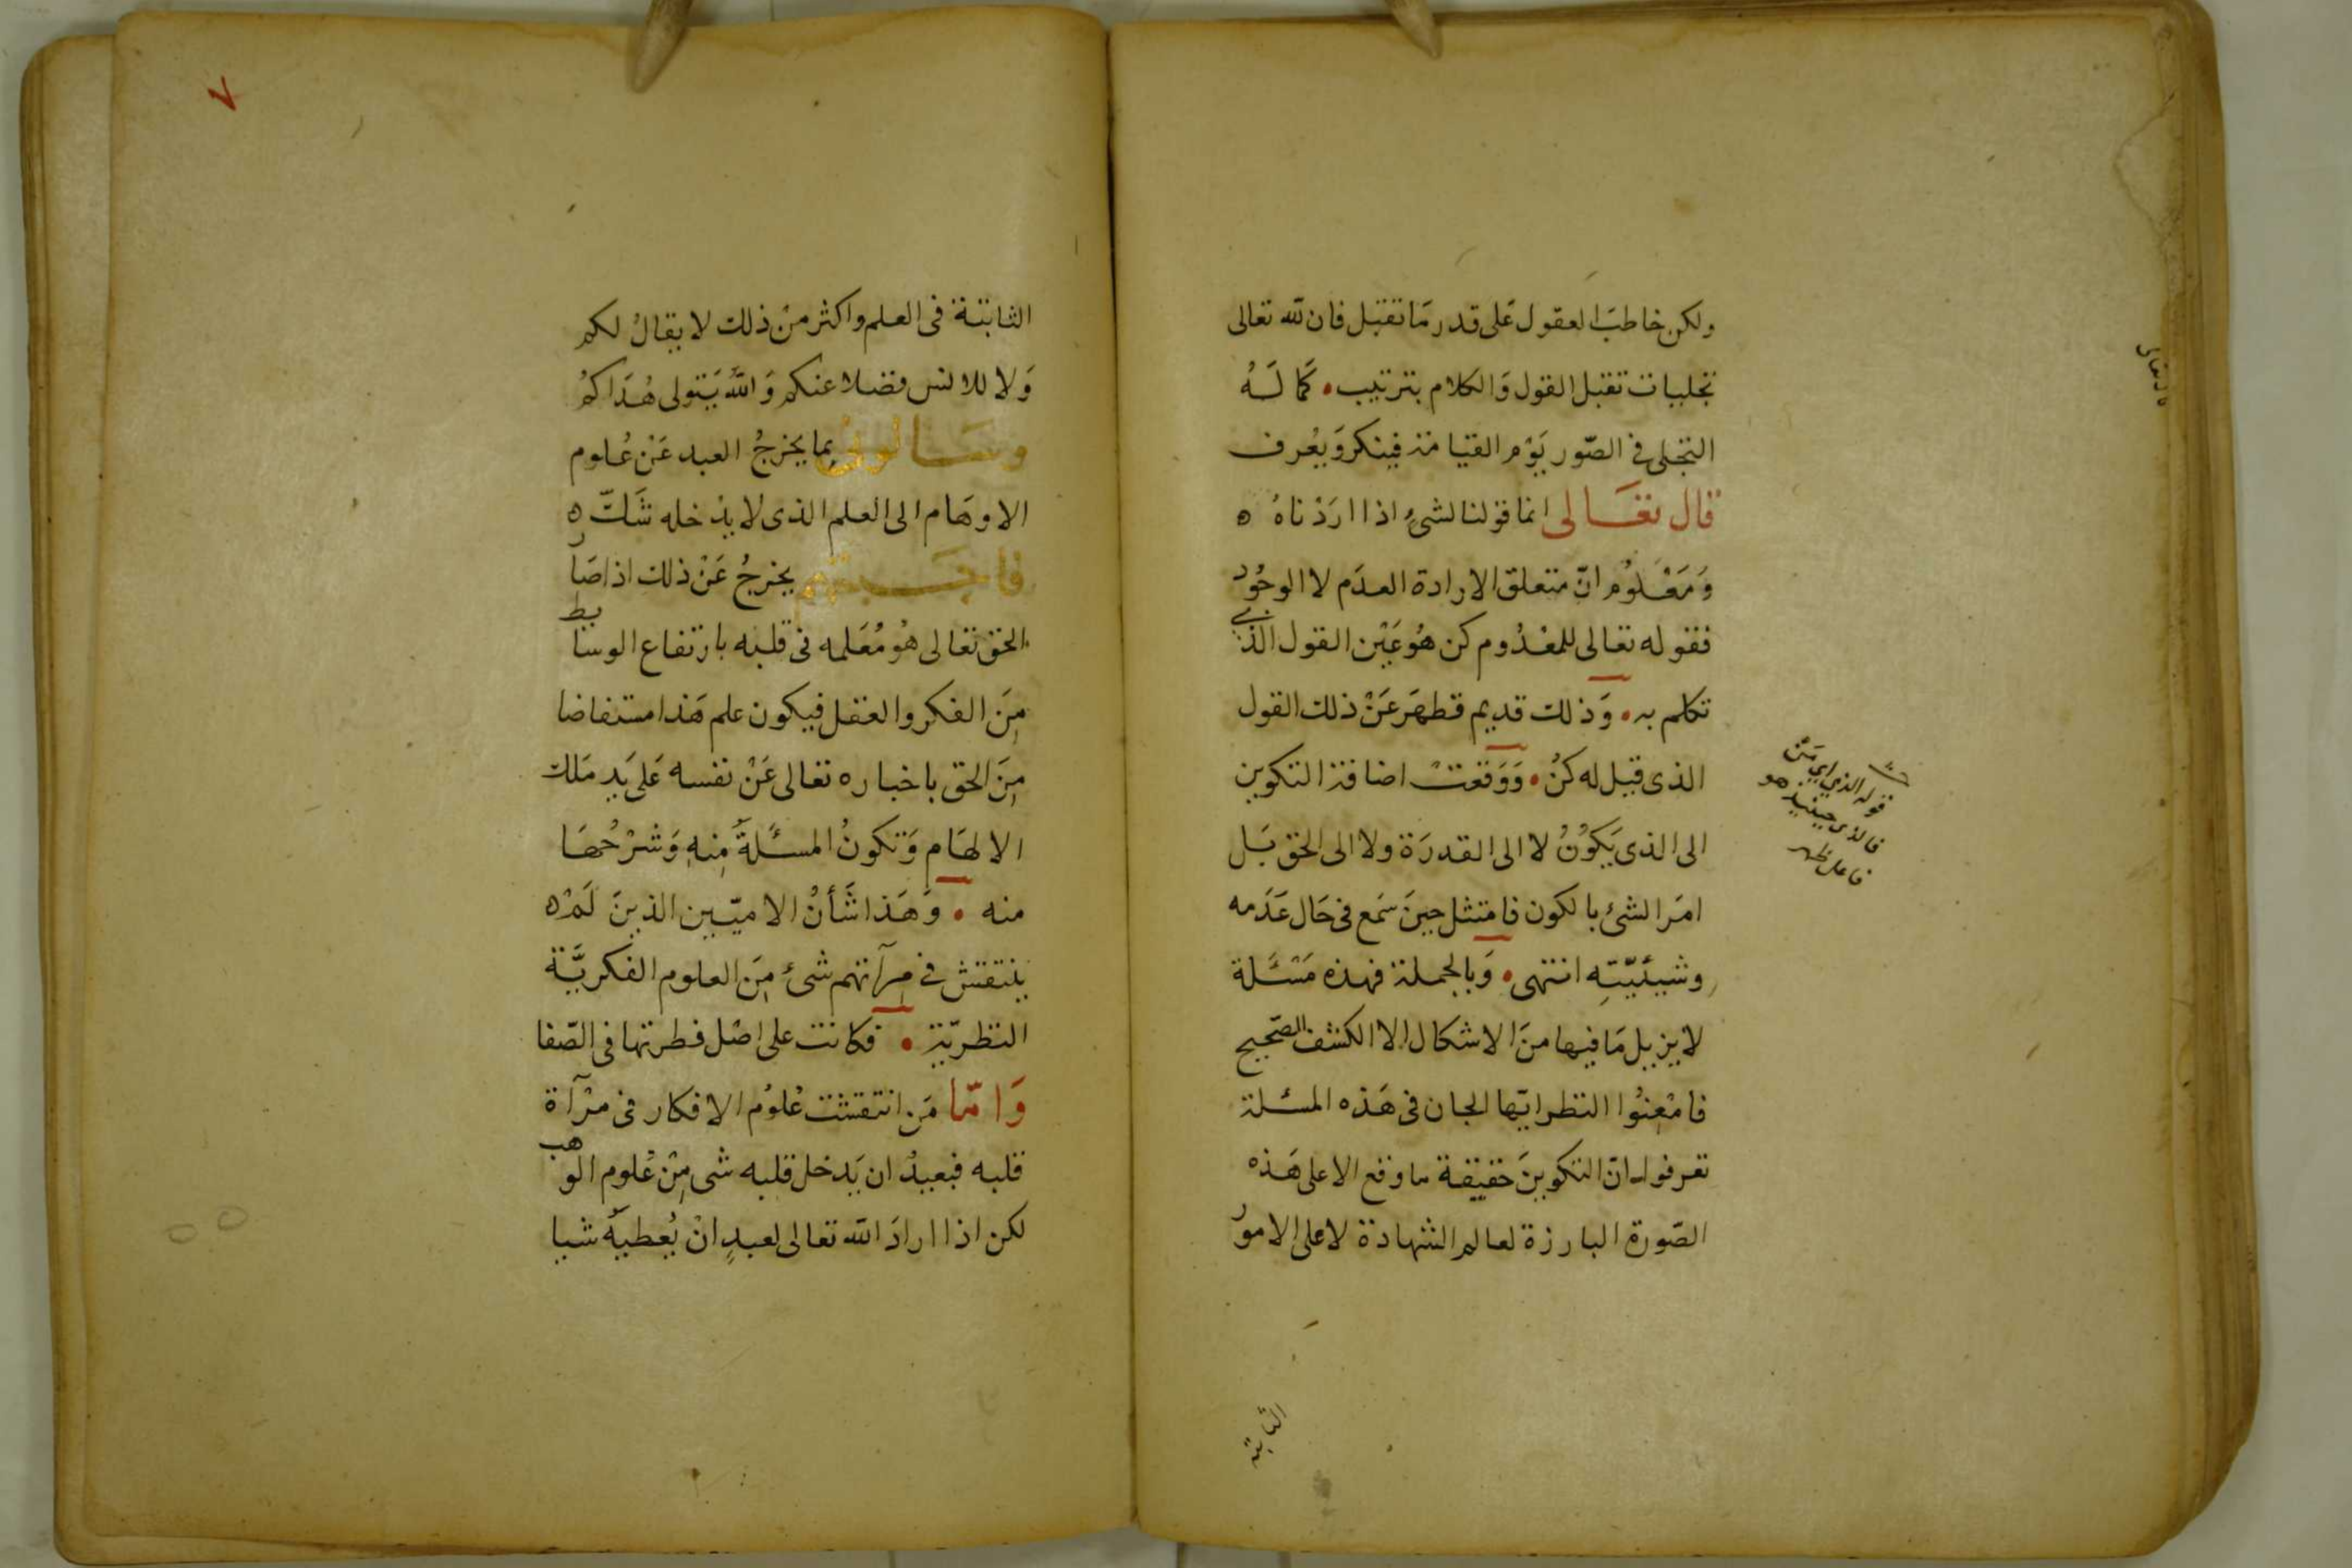 ولكن خاطبَ العقول عَلى قدر مَا تقبل فان لله تعالى
تجليات تقبل القول وَالكلام بترتيب • كَما لَهُ
التجلى فى الصّور يَوْم القيامة فينكر وَيعُرف
قال تعَالى انما قولنا لشئٍ اذا ارَدْناهُ ه
وَمَعْلوُم انّ متعلق الارادة العدَم لا الوجُود
فقوله تعالى للمعْدُوم كن هُو عَيْن القول الذى
تكلم به • وَذلك قديم فظهَر عَنْ ذلك القول
الذى قيل له كنُ • وَوَقعَتْ اضافة التكوين
الى الذى يَكوُنُ لا الى القدرَة ولا الى الحق بَل
امَر الشئ بالكون فامتثل حينَ سَمع فى حَال عَدَمه
وشيئيّتِه انتهى • وَبالجملة فهذه مَسْئَلة
لا يزيل مَا فيها منَ الاشكال الا الكشف الصّحيح
فامْعِنُوا النظر ايّها الجان فى هَذه المسئلة
تعرفوا انّ التكوينَ حقيقة ما وقع الا على هَذه
الصّورة البارزة لعالم الشهادة لا على الامور
قوله الذي اي مَنْ
فالذى حينئيذ هو
فاعل ظهر
الثابتة
٧
الثابتة فى العلم واكثر منْ ذلك لا يقالُ لكم
وَلا للانس فضلا عنكم وَاللهُ يَتولى هُدَاكمُ
وسَالونى بما يخرجُ العبد عَنْ عُلوم
الاوهَام الى العلم الذى لا يدْخله شَكّ ه
فاجَبتهم يخرجُ عَنْ ذلك اذا صَار
الحق تعالى هُو مُعَلمه فى قلبه بارتفاع الوسايط
مِنَ الفكر والعقل فيكون علم هَذا مستفاضا
مِنَ الحق باخباره تعالى عَنْ نفسه عَلى يَدِ مَلك
الالهَام وَتكونُ المسئَلةُ مِنهِ وَشرْحُهَا
منه • وَهَذا شَأنُ الاميّين الذينَ لَمْ ه
ينتقش فى مِرآتهم شئ مِنَ العلوم الفكريَّة
النظريّة • فكانت على اصْل فطرتها فى الصّفا
وَامّا مَن انتقشت عُلوُم الافكار فى مرْآة
قلبه فبعيدُ ان يَدخل قلبه شى مِنْ عُلوم الوهب
لكن اذا ارادَ الله تعالى لعبدٍ انْ يُعطيَهُ شيا